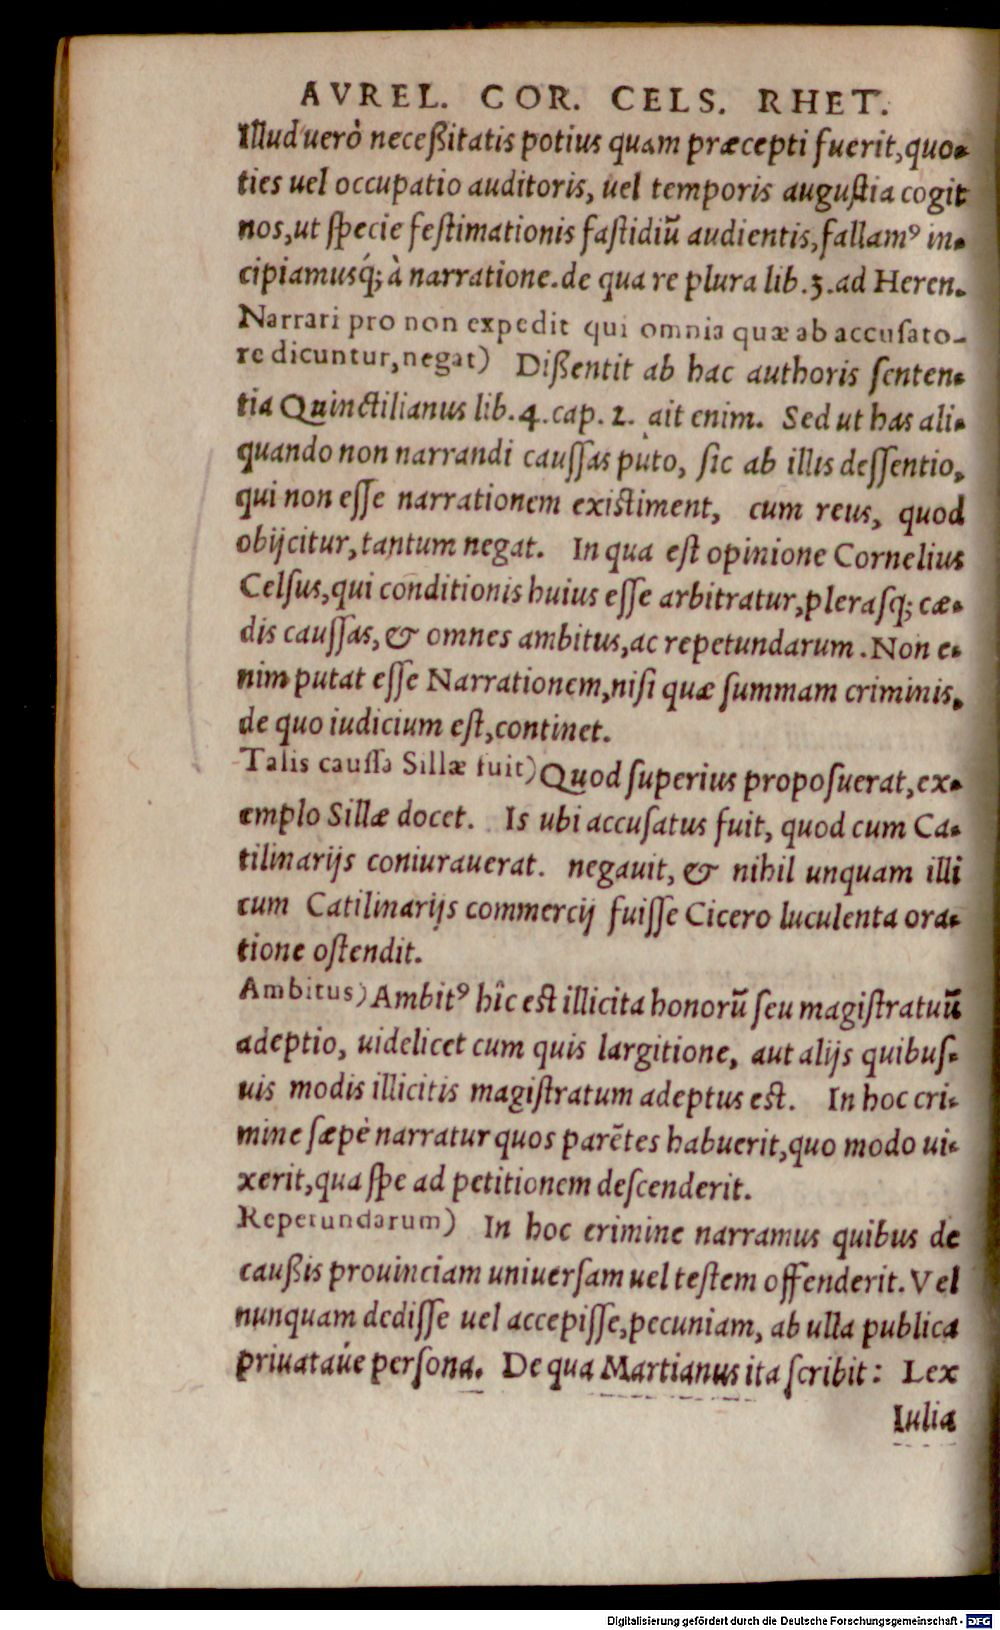 AVREL. COR. CELS. RHET.
Illud uerò neceßitatis potius quam præcepti fuerit, quo-
ties uel occupatio auditoris, uel temporis augustia cogit
nos, ut specie festimationis fastidiũ audientis, fallamꝰ in-
cipiamusq́; à narratione. de qua re plura lib. 3. ad Heren.
Narrari pro non expedit qui omnia quæ ab accusato-
re dicuntur, negat) Dißentit ab hac authoris senten-
tia Quinctilianus lib. 4. cap. 2. ait enim. Sed ut has ali-
quando non narrandi caussas puto, sic ab illis dessentio,
qui non esse narrationem existiment, cum reus, quod
obijcitur, tantum negat. In qua est opinione Cornelius
Celsus, qui conditionis huius esse arbitratur, plerasq; cæ-
dis caussas, & omnes ambitus, ac repetundarum. Non e-
nim putat esse Narrationem, nisi quæ summam criminis,
de quo iudicium est, continet.
Talis caussa Sillæ fuit) Quod superius proposuerat, ex-
emplo Sillæ docet. Is ubi accusatus fuit, quod cum Ca-
tilinarijs coniurauerat. negauit, & nihil unquam illi
cum Catilinarijs commercij fuisse Cicero luculenta ora-
tione ostendit.
Ambitus) Ambitꝰ hîc est illicita honorũ seu magistratuũ
adeptio, uidelicet cum quis largitione, aut alijs quibus-
uis modis illicitis magistratum adeptus est. In hoc cri-
mine sæpè narratur quos parẽtes habuerit, quo modo ui-
xerit, qua spe ad petitionem descenderit.
Repetundarum) In hoc crimine narramus quibus de
caußis prouinciam uniuersam uel testem offenderit. Vel
nunquam dedisse uel accepisse, pecuniam, ab ulla publica
priuataúe persona. De qua Martianus ita scribit: Lex
Iulia
Digitalisierung gefördert durch die Deutsche Forschungsgemeinschaft - DFG